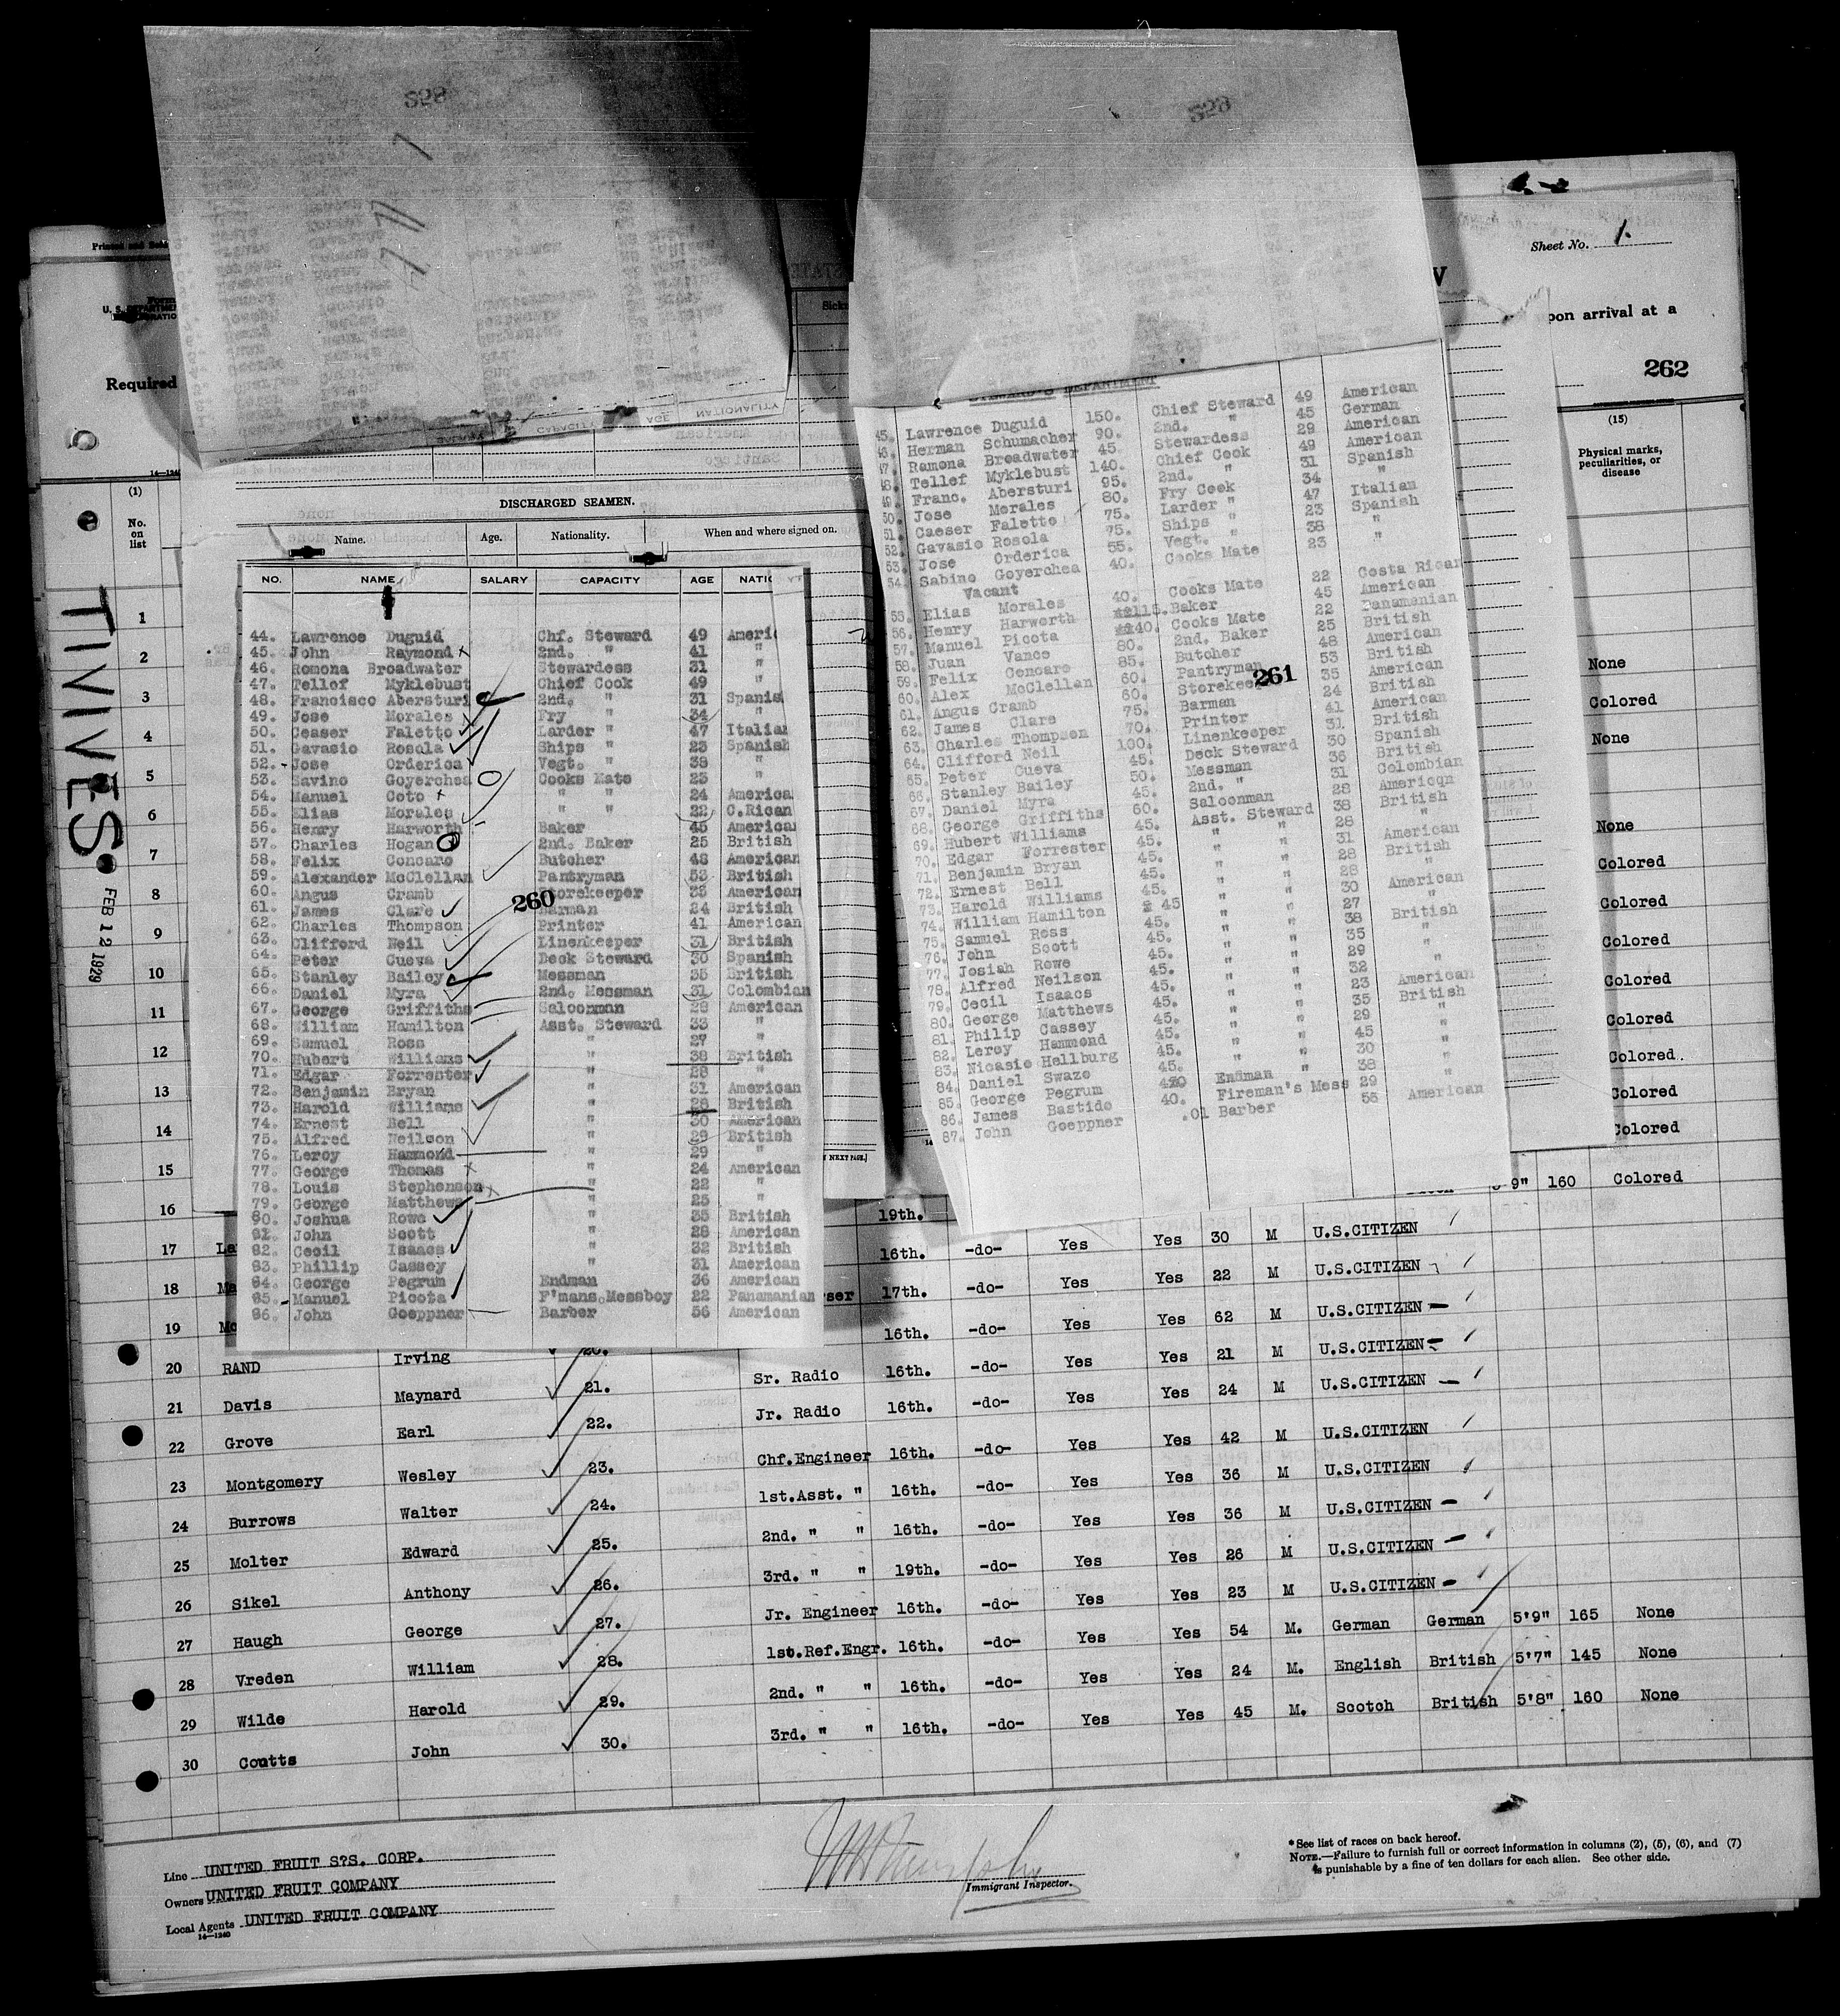 S28
S28
Printed and Sold
Sheet No. 1.
Form
U. S. DEPARTMENT
pon arrival at a
Required
262
(1)
No.
on
list
(15)
Physical marks,
peculiarities, or
disease
TIVIVES
FEB 12 1929
DISCHARGED SEAMEN.
Name. Age. Nationality. When and where signed on.
NO. NAME SALARY CAPACITY AGE NATIO
44. Lawrence Duguid Chf. Steward 49 Americ
45. John Raymond x 2nd. " 41 "
46. Romona Broadwater Stewardess 31 "
47. Tellef Myklebust Chief Cook 49 "
48. Francisco Abersturi 2nd. " 31 Spanis
49. Jose Morales Fry " 34 "
50. Ceaser Faletto Larder " 47 Italian
51. Gavasio Rosola Ships " 23 Spanish
52. Jose Orderica Vegt. " 38 "
53. Savino Goyerchea Cooks Mate 23 "
54. Manuel Coto x " " 24 America
55. Elias Morales " " 22 C.Rican
56. Henry Harworth Baker 45 American
57. Charles Hogan 2nd. Baker 25 British
58. Felix Concaro Butcher 48 American
59. Alexander McClellan Pantryman 53 British
60. Angus Cramb Storekeeper 35 American
61. James Clare Barman 24 British
260
62. Charles Thompson Printer 41 American
63. Clifford Neil Linenkeeper 31 British
64. Peter Cueva Deck Steward 30 Spanish
65. Stanley Bailey Messman 35 British
66. Daniel Myra 2nd. Messman 31 Colombian
67. George Griffiths Saloonman 28 American
68. William Hamilton Asst. Steward 33 "
69. Samuel Ross " 27 "
70. Hubert Williams " 38 British
71. Edgar Forrester " 28 "
72. Benjamin Bryan " 31 American
73. Harold Williams " 28 British
74. Ernest Bell " 30 American
75. Alfred Neilson " 29 British
76. Leroy Hammond " 29 "
77. George Thomas x " 24 American
78. Louis Stephenson x " 22 "
79. George Matthews " 25 "
80. Joshua Rowe " 35 British
81. John Scott " 28 American
82. Cecil Isaacs " 32 British
83. Phillip Cassey " 31 American
84. George Pegrum Endman 36 American
85. Manuel Picota F'mans.Messboy 22 Panamanian
86. John Goeppner Barber 56 American
STEWARD'S DEPARTMENT
45. Lawrence Duguid 150. Chief Steward 49 American
46. Herman Schumacher 90. 2nd. " 45 German
47. Ramona Broadwater 45. Stewardess 29 American
48. Tellef Myklebust 140. Chief Cook 49 American
49. Franc. Abersturi 95. 2nd. " 31 Spanish
50. Jose Morales 80. Fry Cook 34 "
51. Caeser Faletto 75. Larder " 47 Italian
52. Gavasio Rosola 75. Ships " 23 Spanish
53. Jose Orderica 55. Vegt. " 38 "
54. Sabino Goyerchea 40. Cooks Mate 23 "
Vacant
55. Elias Morales 40. Cooks Mate 22 Costa Rican
56. Henry Harworth 115. Baker 45 American
57. Manuel Picota 40. Cooks Mate 22 Panamanian
58. Juan Vance 80. 2nd. Baker 25 British
59. Felix Concaro 85. Butcher 48 American
60. Alex McClellan 60. Pantryman 53 British
61. Angus Cramb 60. Storekeep 35 American
261
62. James Clare 75. Barman 24 British
63. Charles Thompson 70. Printer 41 American
64. Clifford Neil 100. Linenkeeper 31 British
65. Peter Cueva 45. Deck Steward 30 Spanish
66. Stanley Bailey 50. Messman 36 British
67. Daniel Myra 45. 2nd. " 31 Colombian
68. George Griffiths 60. Saloonman 28 Americqn
69. Hubert Williams 45. Asst. Steward 38 British
70. Edgar Forrester 45. " " 28 "
71. Benjamin Bryan 45. " " 31 American
72. Ernest Bell 45. " " 28 British
73. Harold Williams 45. " " 28 "
74. William Hamilton 45 " " 30 American
75. Samuel Ross 45. " " 27 "
76. John Scott 45. " " 38 British
77. Josiah Rowe 45. " " 35 "
78. Alfred Neilson 45. " " 29 "
79. Cecil Isaacs 45. " " 32
80. George Matthews 45. " " 23 American
81. Philip Cassey 45. " " 35 British
82. Leroy Hammond 45. " " 29 "
83. Nicasie Hellburg 45. " " 45 "
84. Daniel Swaze 45. " " 30 "
85. George Pegrum Endman " 38 "
86. James Bastido 40. Fireman's Mess 29
87. John Goeppner .01 Barber 55 American
1
2 None
3 Colored
4 None
5
6 None
7 Colored
8 Colored
9 Colored
10 Colored
11 Colored
12 Colored.
13 Colored
14 Colored
15 9" 160 Colored
16 19th.
17 La 16th. -do- Yes Yes 30 M U.S.CITIZEN
18 Ma ser 17th. -do- Yes Yes 22 M U.S.CITIZEN
19 Mo 16th. -do- Yes Yes 62 M U.S.CITIZEN
20 RAND Irving 20. Sr. Radio 16th. -do- Yes Yes 21 M U.S.CITIZEN
21 Davis Maynard 21. Jr. Radio 16th. -do- Yes Yes 24 M U.S.CITIZEN
22 Grove Earl 22. Chf.Engineer 16th. -do- Yes Yes 42 M U.S.CITIZEN
23 Montgomery Wesley 23. 1st.Asst. " 16th. -do- Yes Yes 36 M U.S.CITIZEN
24 Burrows Walter 24. 2nd. " " 16th. -do- Yes Yes 36 M U.S.CITIZEN
25 Molter Edward 25. 3rd. " " 19th. -do- Yes Yes 26 M U.S.CITIZEN
26 Sikel Anthony 26. Jr. Engineer 16th. -do- Yes Yes 23 M U.S.CITIZEN
27 Haugh George 27. 1st.Ref.Engr. 16th. -do- Yes Yes 54 M. German German 5'9" 165 None
28 Vreden William 28. 2nd. " " 16th. -do- Yes Yes 24 M. English British 5'7" 145 None
29 Wilde Harold 29. 3rd. " " 16th. -do- Yes Yes 45 M. Scotch British 5'8" 160 None
30 Coutts John 30.
Line UNITED FRUIT S?S. CORP.
Owners UNITED FRUIT COMPANY
Local Agents UNITED FRUIT COMPANY
14—1240
Immigrant Inspector.
*See list of races on back hereof.
NOTE.—Failure to furnish full or correct information in columns (2), (5), (6), and (7)
is punishable by a fine of ten dollars for each alien. See other side.